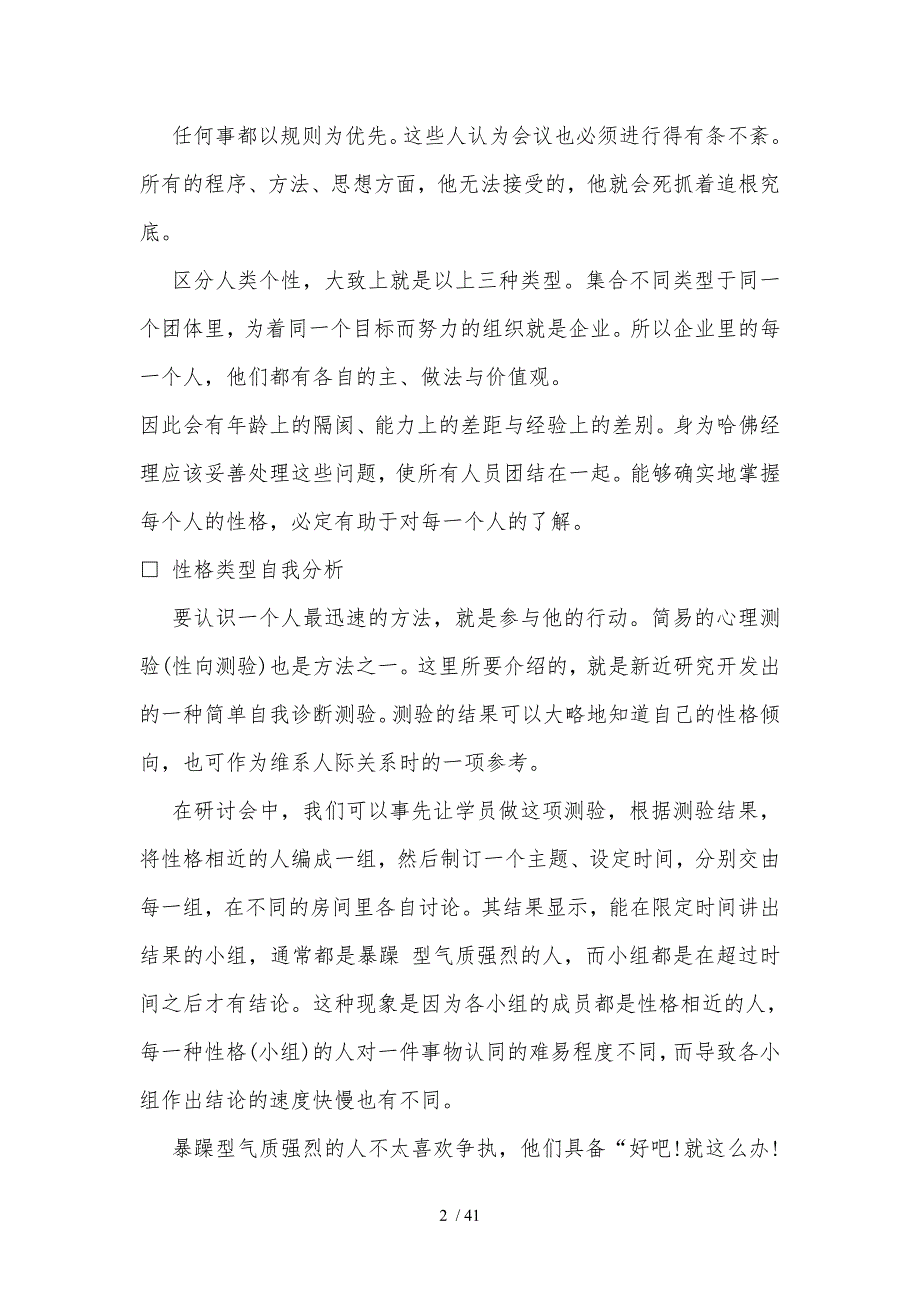 任何事都以规则为优先。这些人认为会议也必须进行得有条不紊。
所有的程序、方法、思想方面，他无法接受的，他就会死抓着追根究
底。
区分人类个性，大致上就是以上三种类型。集合不同类型于同一
个团体里，为着同一个目标而努力的组织就是企业。所以企业里的每
一个人，他们都有各自的主、做法与价值观。
因此会有年龄上的隔阂、能力上的差距与经验上的差别。身为哈佛经
理应该妥善处理这些问题，使所有人员团结在一起。能够确实地掌握
每个人的性格，必定有助于对每一个人的了解。
□ 性格类型自我分析
要认识一个人最迅速的方法，就是参与他的行动。简易的心理测
验(性向测验)也是方法之一。这里所要介绍的，就是新近研究开发出
的一种简单自我诊断测验。测验的结果可以大略地知道自己的性格倾
向，也可作为维系人际关系时的一项参考。
在研讨会中，我们可以事先让学员做这项测验，根据测验结果，
将性格相近的人编成一组，然后制订一个主题、设定时间，分别交由
每一组，在不同的房间里各自讨论。其结果显示，能在限定时间讲出
结果的小组，通常都是暴躁 型气质强烈的人，而小组都是在超过时
间之后才有结论。这种现象是因为各小组的成员都是性格相近的人，
每一种性格(小组)的人对一件事物认同的难易程度不同，而导致各小
组作出结论的速度快慢也有不同。
暴躁型气质强烈的人不太喜欢争执，他们具备“好吧!就这么办!
2 / 41